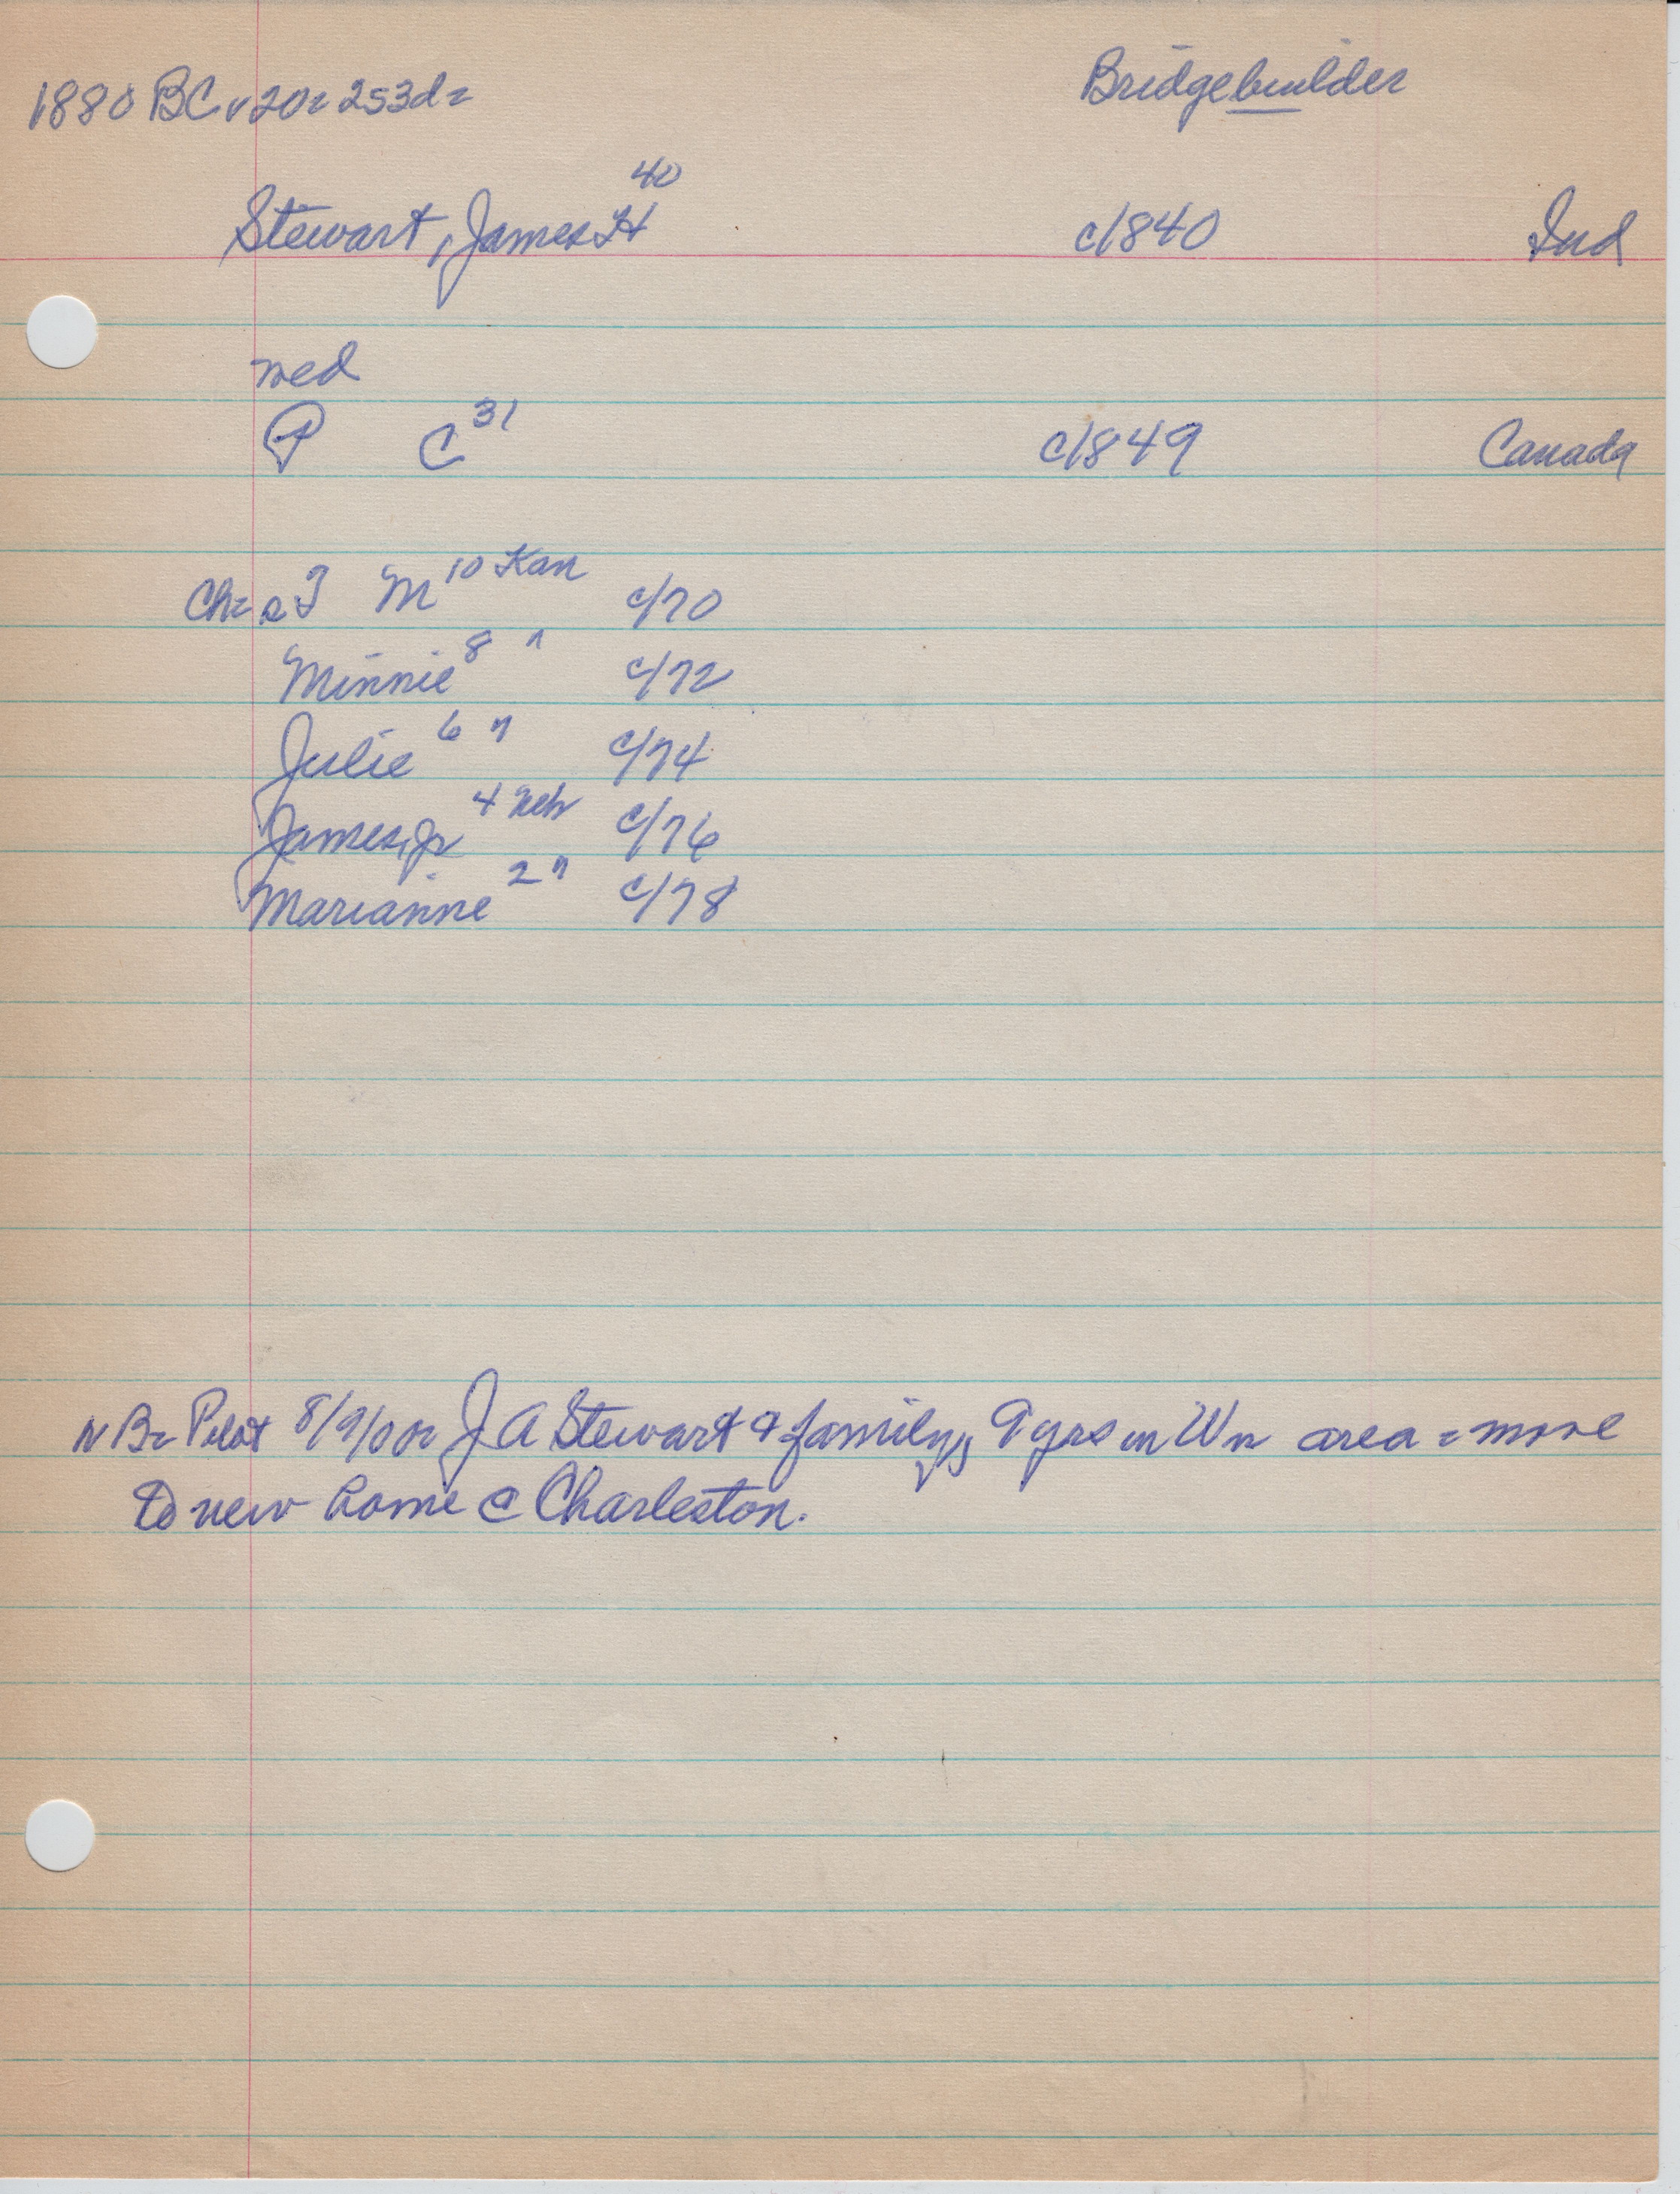 1880 BC v20= 253d= Bridgebuilder
Stewart, James H 40 c/1840 Ind
med
P C 31 c/1849 Canada
Ch= M 10 Kan c/70
Minnie 8 " c/72
Julie 6 " c/74
James, Jr 4 Neb c/76
Marianne 2 " c/78
NB= Pilot 8/9/00= J A Stewart & family, 9 yrs in Wn area = move
to new home @ Charleston.